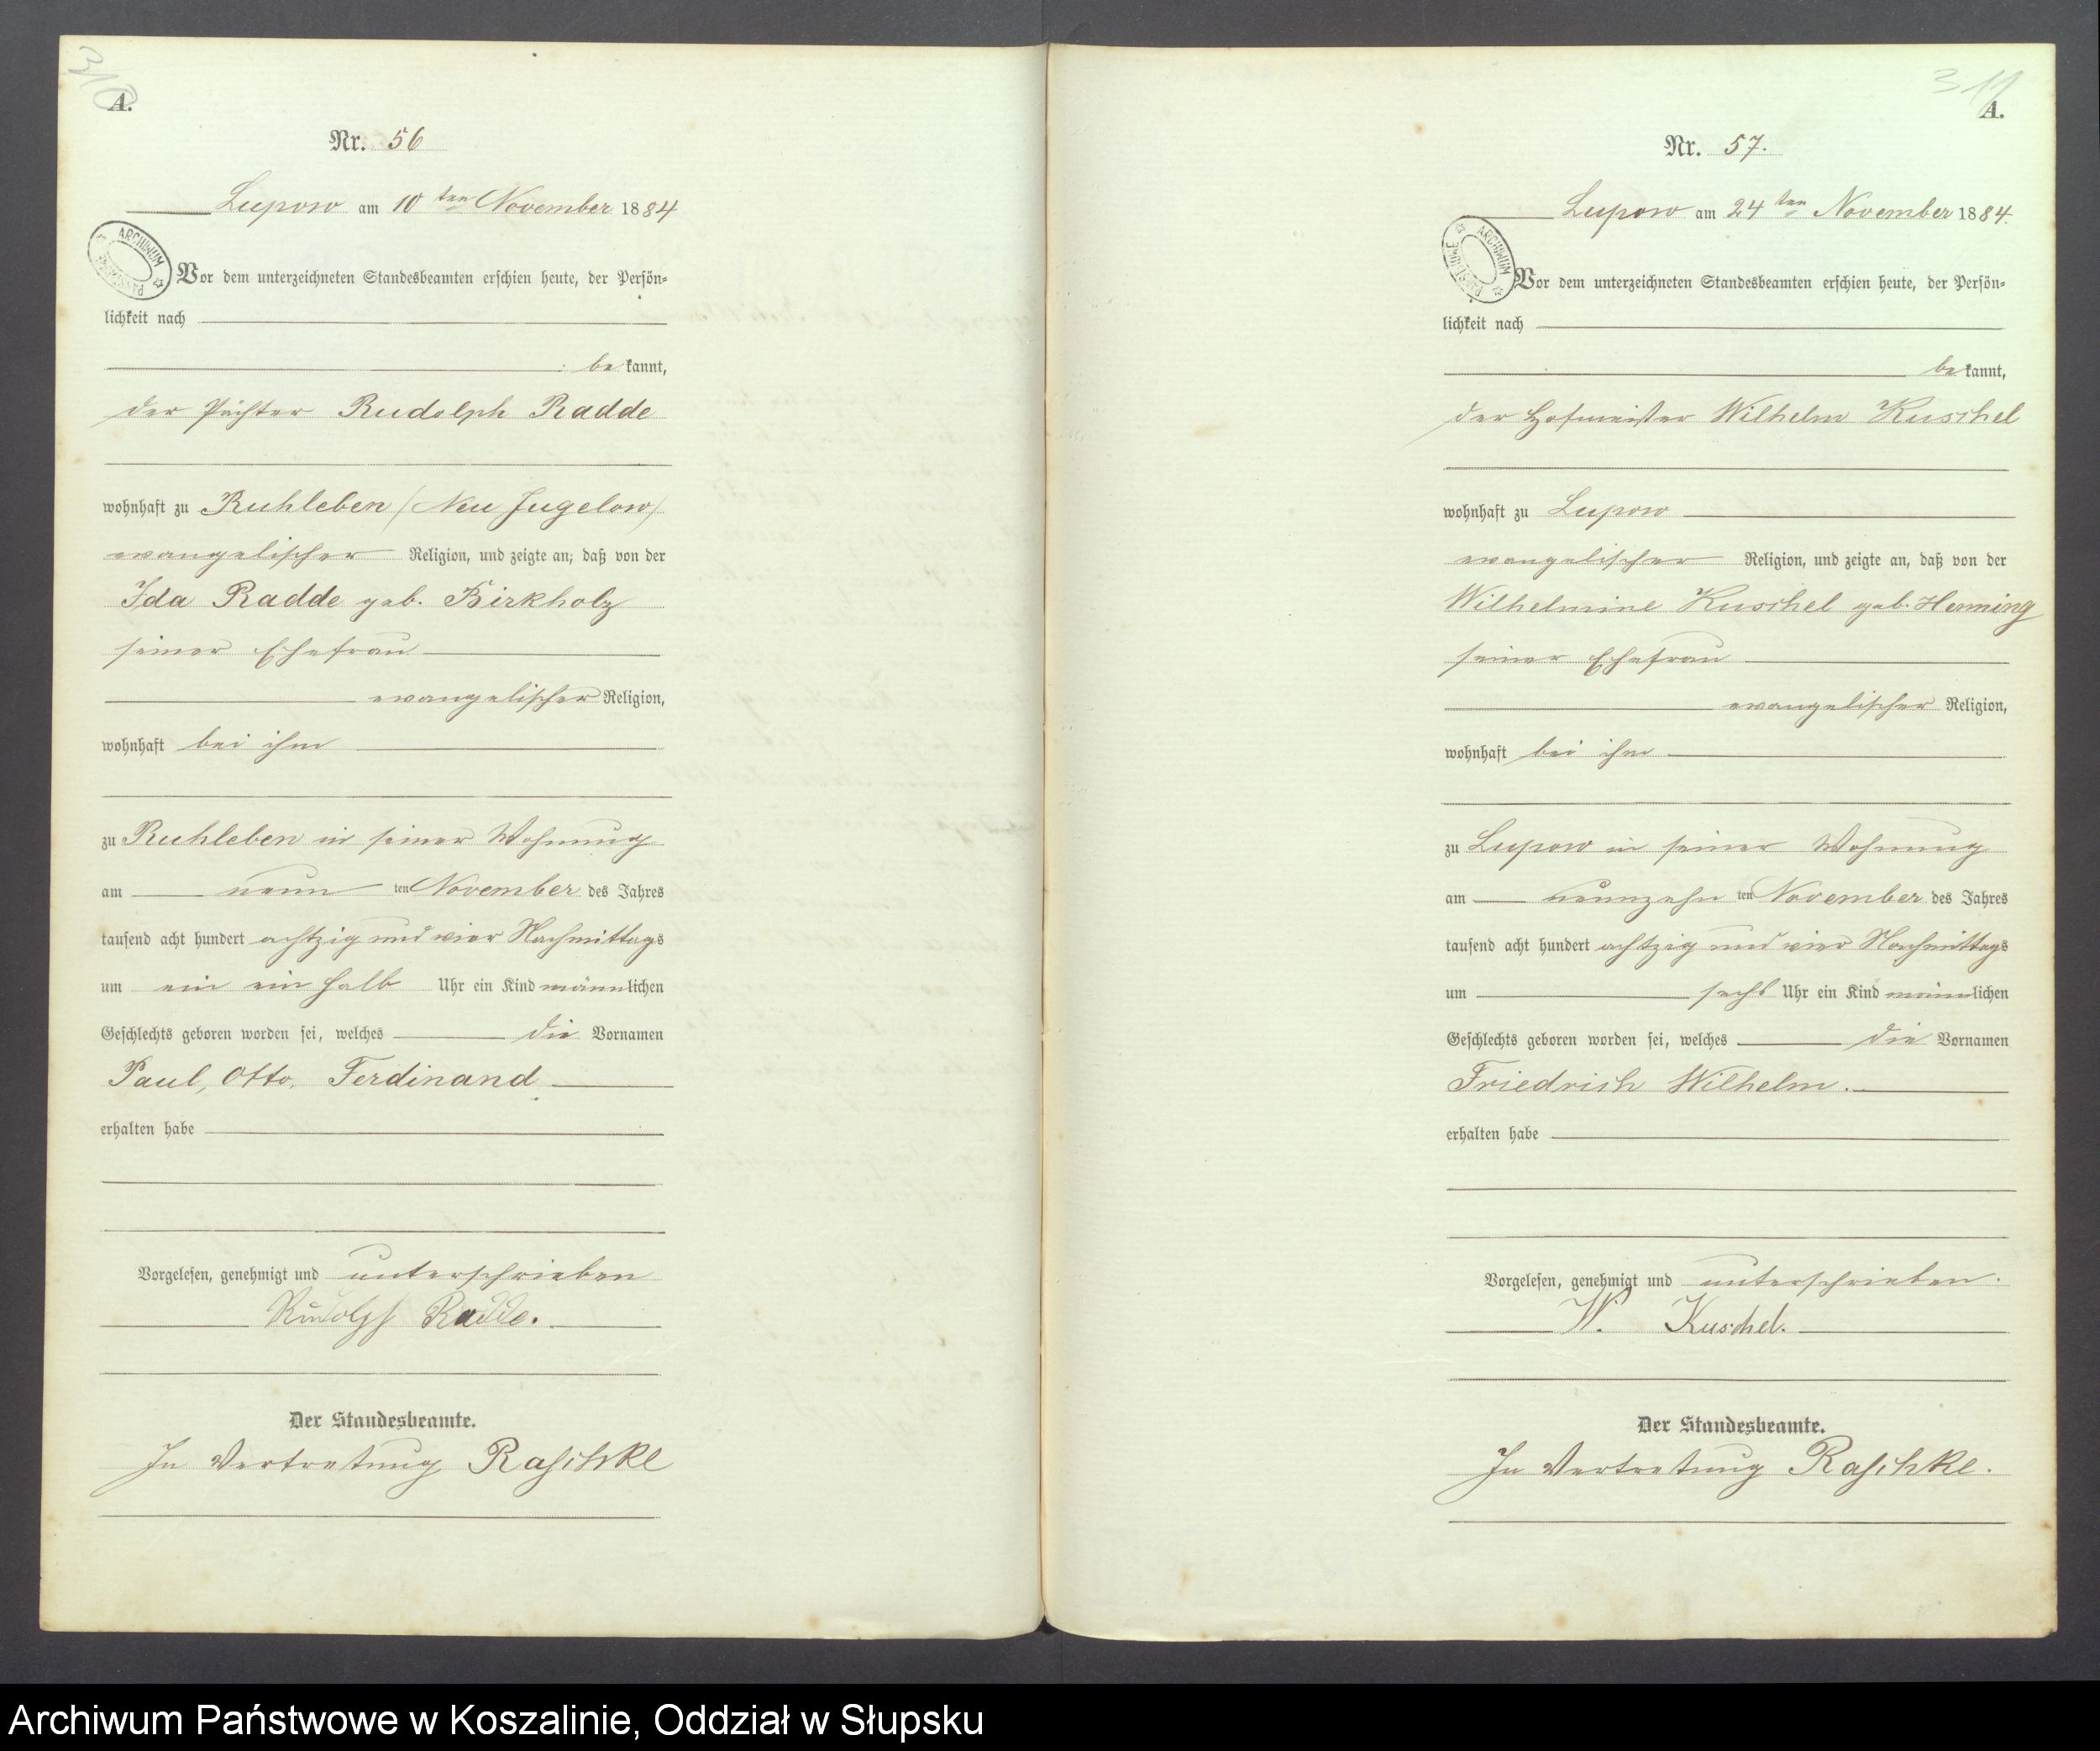 310
A.
Nr. 56
Lupow am 10ten November 1884
ARCHIWUM
Vor dem unterzeichneten Standesbeamten erschien heute, der Persön-
lichkeit nach
bekannt,
der Pächter Rudolph Radde
wohnhaft zu Ruhleben /Neu Jugelow/
evangelischer Religion, und zeigte an, daß von der
Ida Radde geb. Birkholz
seiner Ehefrau
evangelischer Religion,
wohnhaft bei ihm
zu Ruhleben in seiner Wohnung
am neun ten November des Jahres
tausend acht hundert achtzig und vier Nachmittags
um ein ein halb Uhr ein Kind männlichen
Geschlechts geboren worden sei, welches die Vornamen
Paul, Otto, Ferdinand
erhalten habe
Vorgelesen, genehmigt und unterschrieben
Rudolph Radde.
Der Standesbeamte.
In Vertretung Raschke
311
A.
Nr. 57.
Lupow am 24ten November 1884.
ARCHIWUM
Vor dem unterzeichneten Standesbeamten erschien heute, der Persön-
lichkeit nach
bekannt,
der Hofmeister Wilhelm Kuschel
wohnhaft zu Lupow
evangelischer Religion, und zeigte an, daß von der
Wilhelmine Kuschel geb. Henning
seiner Ehefrau
evangelischer Religion,
wohnhaft bei ihm
zu Lupow in seiner Wohnung
am neunzehn ten November des Jahres
tausend acht hundert achtzig und vier Nachmittags
um sechs Uhr ein Kind männlichen
Geschlechts geboren worden sei, welches die Vornamen
Friedrich Wilhelm.
erhalten habe
Vorgelesen, genehmigt und unterschrieben.
W. Kuschel.
Der Standesbeamte.
In Vertretung Raschke.
Archiwum Państwowe w Koszalinie, Oddział w Słupsku